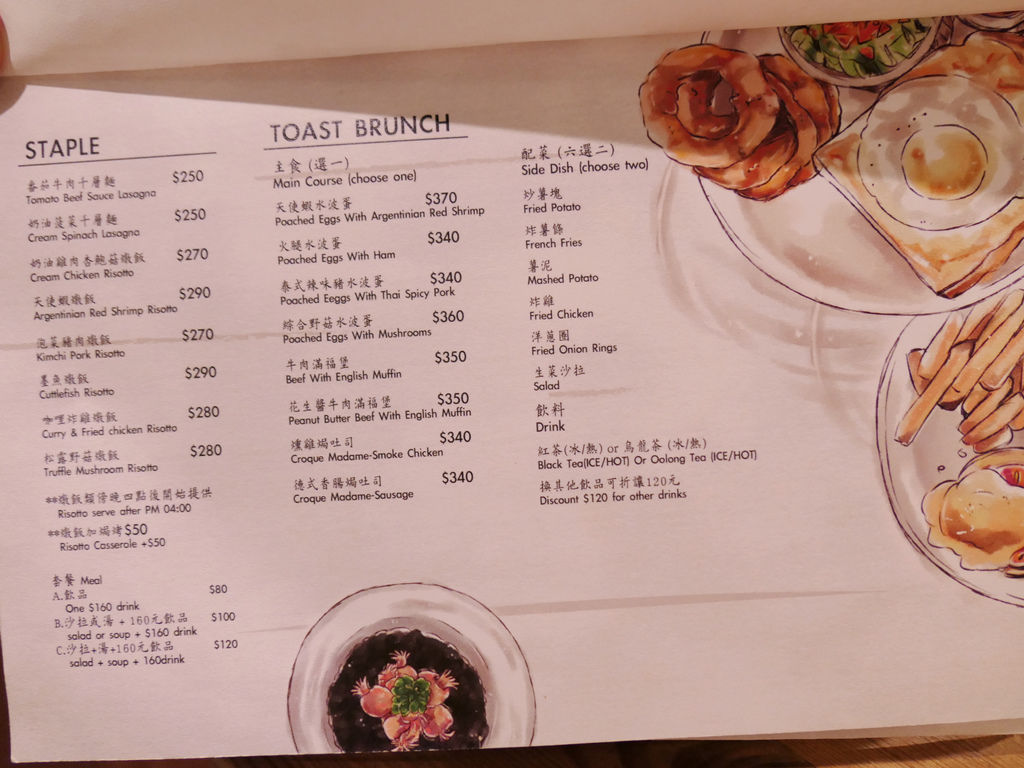 STAPLE
番茄牛肉千層麵 $250
Tomato Beef Sauce Lasagna
奶油菠菜千層麵 $250
Cream Spinach Lasagna
奶油雞肉杏鮑菇燉飯 $270
Cream Chicken Risotto
天使蝦燉飯 $290
Argentinian Red Shrimp Risotto
泡菜豬肉燉飯 $270
Kimchi Pork Risotto
墨魚燉飯 $290
Cuttlefish Risotto
咖哩炸雞燉飯 $280
Curry & Fried chicken Risotto
松露野菇燉飯 $280
Truffle Mushroom Risotto
**燉飯類傍晚四點後開始提供
Risotto serve after PM 04:00
**燉飯加焗烤$50
Risotto Casserole +$50
套餐 Meal
A.飲品 $80
One $160 drink
B.沙拉或湯 + 160元飲品 $100
salad or soup + $160 drink
C.沙拉+湯+160元飲品 $120
salad + soup + 160drink
TOAST BRUNCH
主食 (選一)
Main Course (choose one)
天使蝦水波蛋 $370
Poached Eggs With Argentinian Red Shrimp
火腿水波蛋 $340
Poached Eggs With Ham
泰式辣味豬水波蛋 $340
Poached Eeggs With Thai Spicy Pork
綜合野菇水波蛋 $360
Poached Eggs With Mushrooms
牛肉滿福堡 $350
Beef With English Muffin
花生醬牛肉滿福堡 $350
Peanut Butter Beef With English Muffin
燻雞焗吐司 $340
Croque Madame-Smoke Chicken
德式香腸焗吐司 $340
Croque Madame-Sausage
配菜 (六選二)
Side Dish (choose two)
炒薯塊
Fried Potato
炸薯條
French Fries
薯泥
Mashed Potato
炸雞
Fried Chicken
洋蔥圈
Fried Onion Rings
生菜沙拉
Salad
飲料
Drink
紅茶(冰/熱) or 烏龍茶 (冰/熱)
Black Tea(ICE/HOT) Or Oolong Tea (ICE/HOT)
換其他飲品可折讓120元
Discount $120 for other drinks